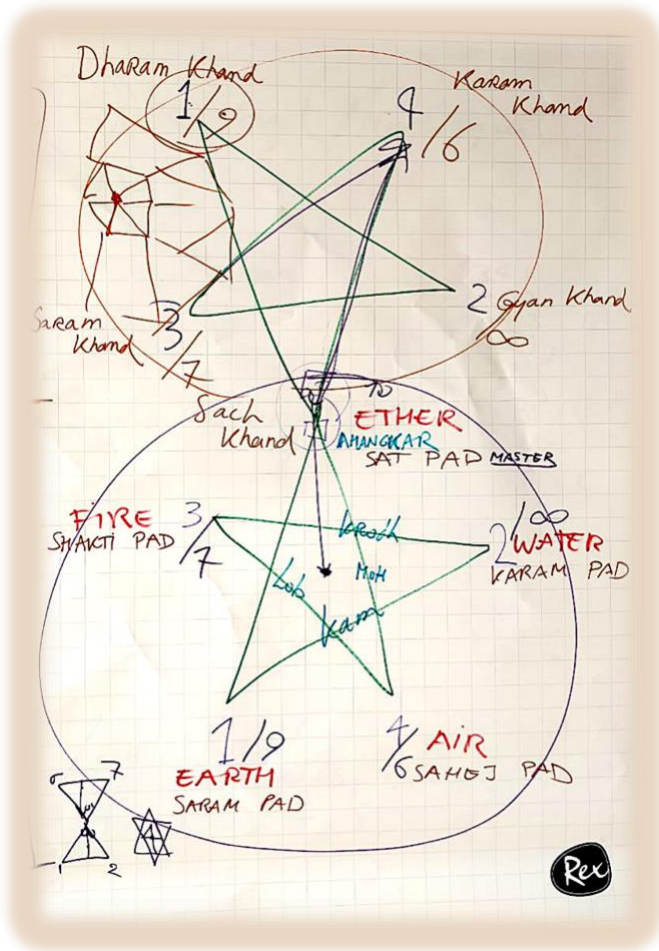 Dharam Khand
1/9
4/6
Karam
Khand
2 Gyan Khand
/∞
Saram
Khand
3/7
Sach
Khand
10
ETHER
AHANGKAR
SAT PAD MASTER
FIRE 3/7
SHAKTI PAD
Kroth
2/∞
WATER
KARAM PAD
Lob
MoH
Kam
1/9
EARTH
SARAM PAD
4/6 AIR
SAHEJ PAD
6 7
1 2
Rex